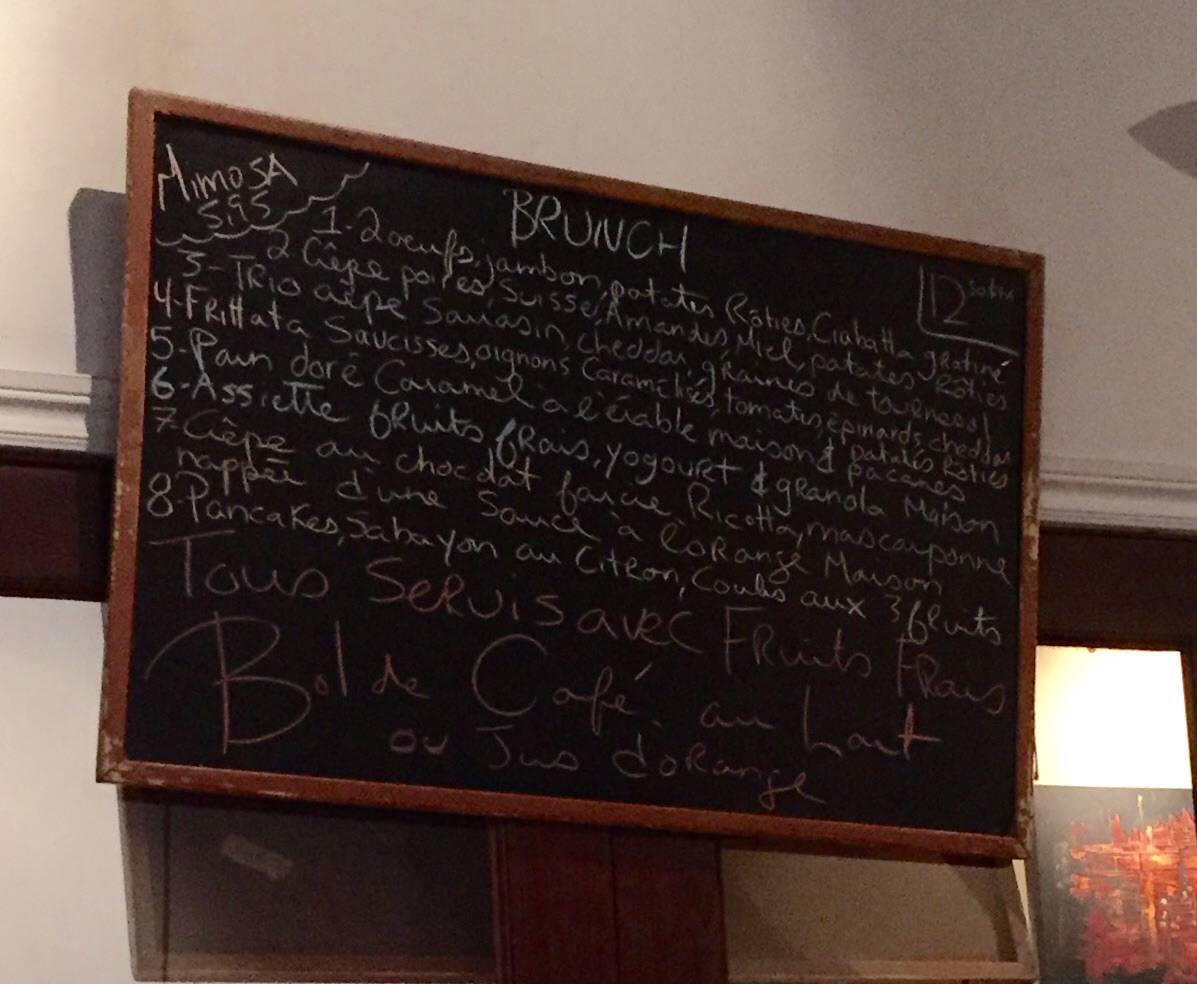 Mimosa
5.95
BRUNCH
12 50+tx
1-2 oeufs, jambon, patates Rôties, Ciabatta gratiné
2 Crêpe poires, Suisse, Amandes, Miel, patates Rôties
3-TRio crêpe Sarrasin, cheddar, graines de tournesol
4-FRittata Saucisses, oignons Caramélisés, tomates, épinards, cheddar & patates Rôties
5-Pain doré Caramel à l'érable maison & pacanes
6-Assiette fRuits fRais, yogourt & granola Maison
7-Crêpe au chocolat farcie Ricotta, mascarponne
nappée d'une Sauce à l'oRange Maison
8-Pancakes, Sabayon au CitRon, Coulis aux 3 fRuits
Tous SeRvis avec FRuits FRais
Bol de Café au Lait
ou Jus d'oRange